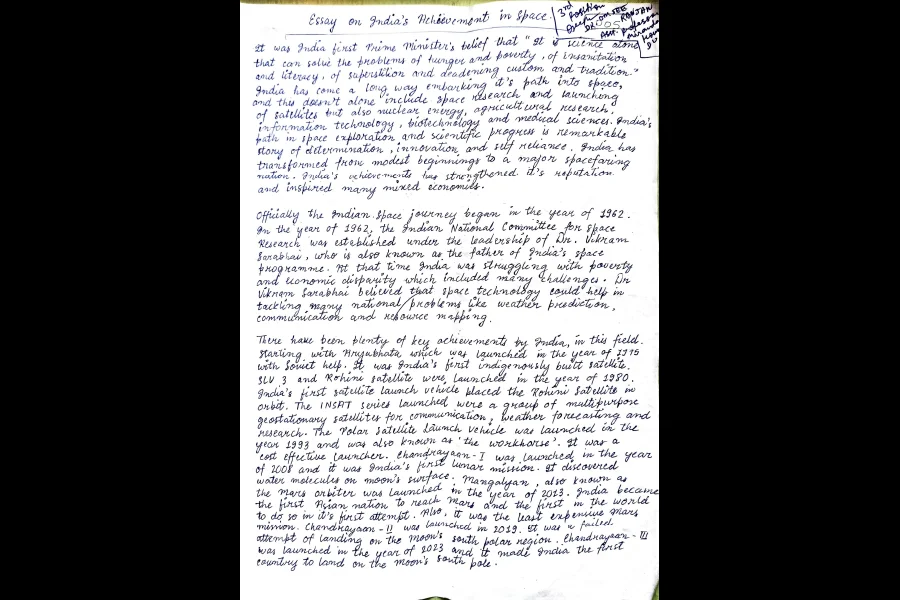 Essay on India's Achievement in Space.
3rd Position
DR. OMJEE RANJAN
Asst. Professor
It was India first Prime Minister's belief that "It is science alone
that can solve the problems of hunger and poverty, of insanitation
and literacy, of superstition and deadening custom and tradition."
India has come a long way embarking it's path into space,
and this doesn't alone include space research and launching
of satellites but also nuclear energy, agricultural research,
information technology, biotechnology and medical sciences. India's
path in space exploration and scientific progress is remarkable
story of determination, innovation and self reliance. India has
transformed from modest beginnings to a major spacefaring
nation. India's achievements has strengthened it's reputation
and inspired many mixed economies.
Officially the Indian space journey began in the year of 1962.
In the year of 1962, the Indian National Committee for Space
Research was established under the leadership of Dr. Vikram
Sarabhai, who is also known as the father of India's space
programme. At that time India was struggling with poverty
and economic disparity which included many challenges. Dr
Vikram Sarabhai believed that space technology could help in
tackling many national problems like weather prediction,
communication and resource mapping.
There have been plenty of key achievements by India, in this field.
Starting with Aryabhata which was launched in the year of 1975
with Soviet help. It was India's first indigenously built satellite.
SLV 3 and Rohini satellite were launched in the year of 1980.
India's first satellite launch vehicle placed the Rohini Satellite in
orbit. The INSAT series launched were a group of multipurpose
geostationary satellites for communication, weather forecasting and
research. The Polar Satellite Launch Vehicle was launched in the
year 1993 and was also known as 'the workhorse'. It was a
cost effective launcher. Chandrayaan-I was launched in the year
of 2008 and it was India's first lunar mission. It discovered
water molecules on moon's surface. Mangalyan, also known as
the Mars orbiter was launched in the year of 2013. India became
the first Asian nation to reach Mars and the first in the world
to do so in it's first attempt. Also, it was the least expensive Mars
mission. Chandrayaan-II was launched in 2019. It was a failed
attempt of landing on the moon's south polar region. Chandrayaan-III
was launched in the year of 2023 and it made India the first
country to land on the moon's south pole.